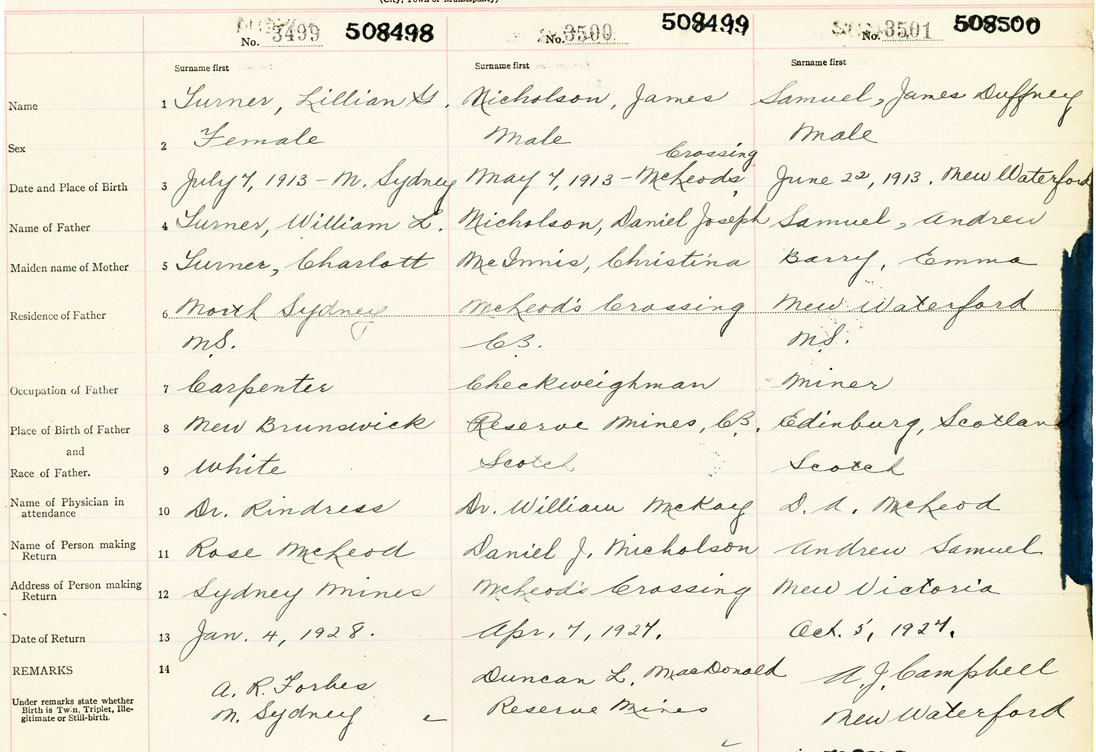 (City, Town or Municipality)
No. 3499 508498
No. 3500 508499
No. 3501 508500
Surname first Surname first Surname first
Name 1 Turner, Lillian G. Nicholson, James Samuel, James Duffney
Sex 2 Female Male Male
Crossing
Date and Place of Birth 3 July 7, 1913 - N. Sydney May 7, 1913 - McLeod's June 22, 1913. New Waterford
Name of Father 4 Turner, William L. Nicholson, Daniel Joseph Samuel, Andrew
Maiden name of Mother 5 Turner, Charlott McInnis, Christina Barry, Emma
Residence of Father 6 North Sydney McLeod's Crossing New Waterford
N.S. C.B. N.S.
Occupation of Father 7 Carpenter Checkweighman Miner
Place of Birth of Father 8 New Brunswick Reserve Mines, C.B. Edinburg, Scotland
and
Race of Father. 9 White Scotch Scotch
Name of Physician in attendance 10 Dr. Rindress Dr. William McKay D. A. McLeod
Name of Person making Return 11 Rose McLeod Daniel J. Nicholson Andrew Samuel
Address of Person making Return 12 Sydney Mines McLeod's Crossing New Victoria
Date of Return 13 Jan. 4, 1928. Apr. 7, 1927. Oct. 5, 1927.
REMARKS 14 A. R. Forbes Duncan L. MacDonald A. J. Campbell
Under remarks state whether Birth is Twin, Triplet, Ille-
gitimate or Still-birth.
N. Sydney Reserve Mines New Waterford